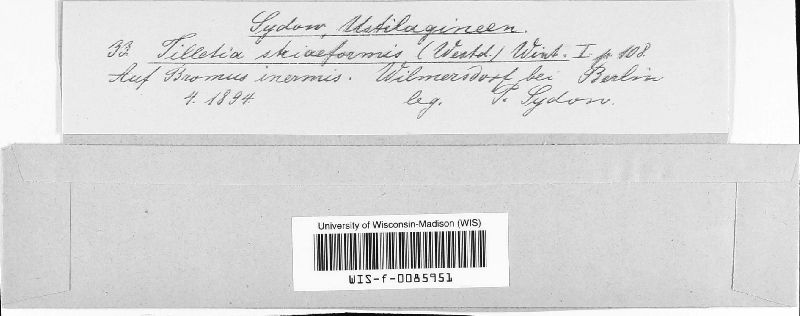 Sydow, Ustilagineen.
33 Tilletia striaeformis (Westd) Wint. I p 108.
Auf Bromus inermis. Wilmersdorf bei Berlin
4. 1894 leg. P. Sydow.
University of Wisconsin-Madison (WIS)
WIS-f-0085951